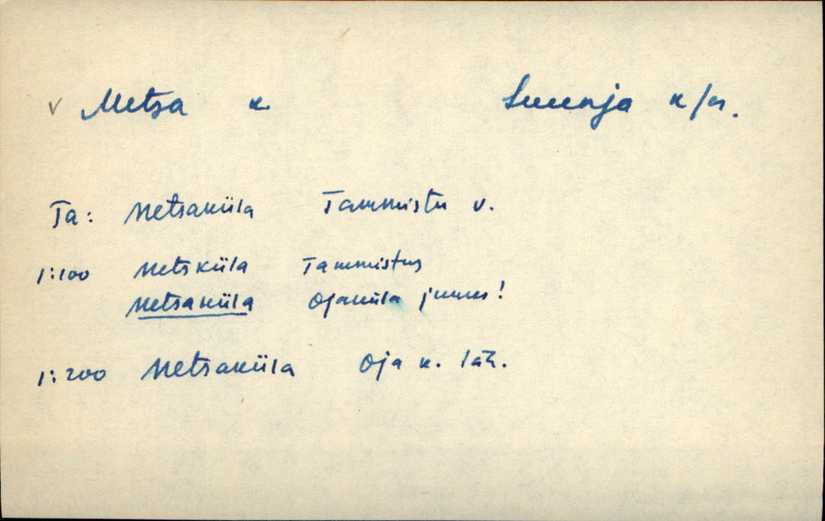 v Metsa k. Luunja k/n.
Ta: Metsaküla Tammistu v.
1:100 Metsküla Tammistus
Metsaküla Ojaküla juures!
1:200 Metsaküla Oja k. läh.